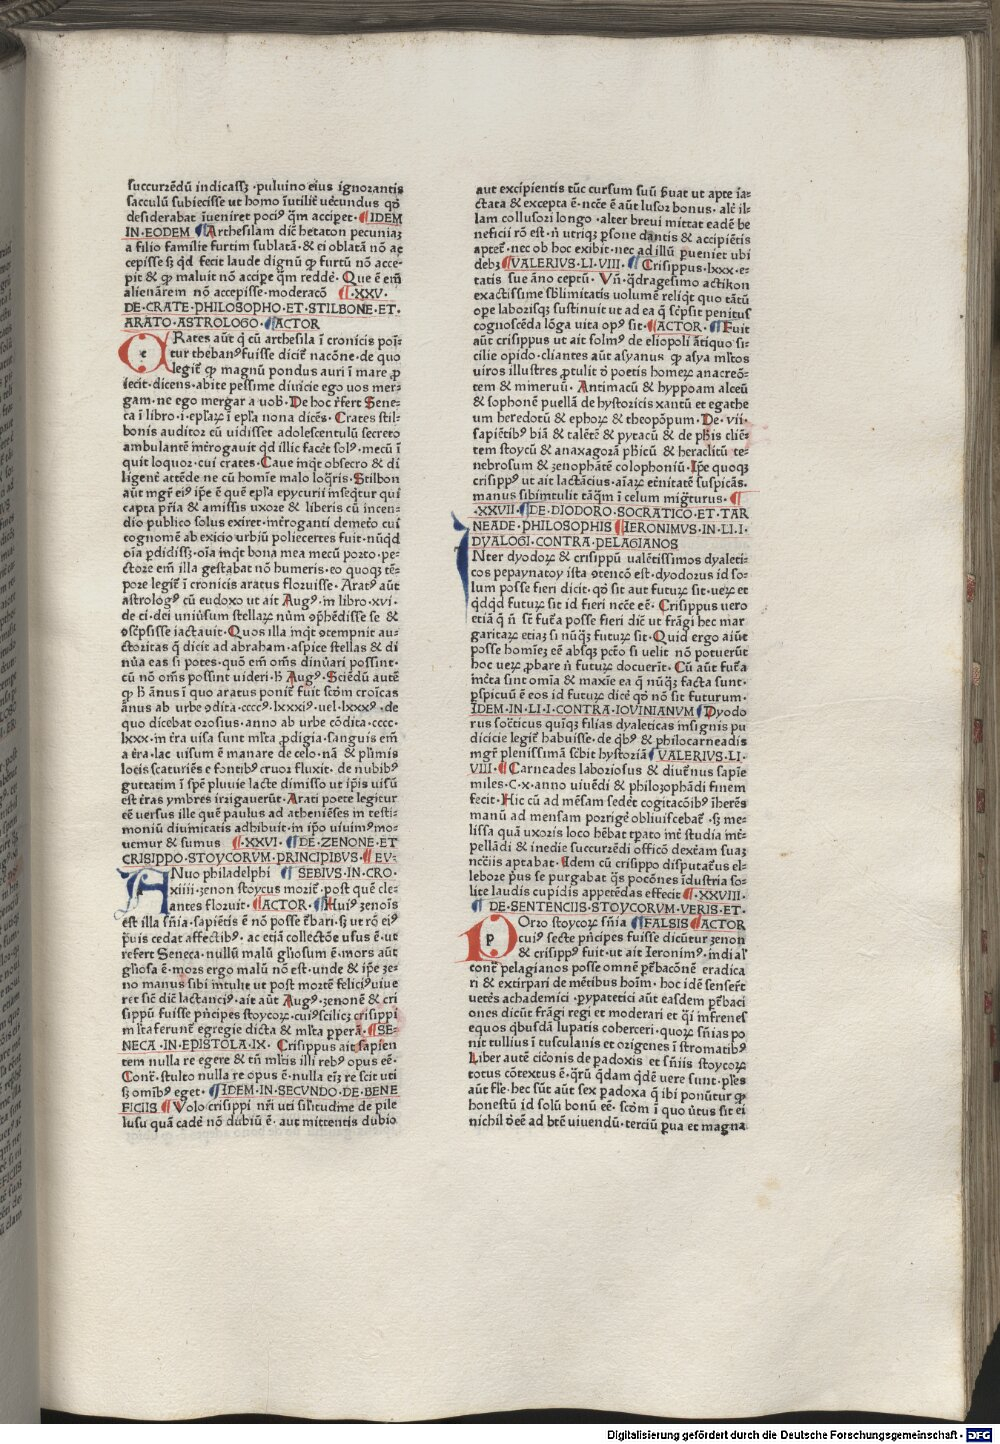 succurrēdū indicassꝫ · puluino eius ignorantis
sacculū subiecisse ut homo īutiliť uēcundus qđ
desiderabat īueniret pociꝰ q̄m acciꝑet · ¶ IDEM
IN · EODEM ¶ Arthesilam dic̄ hetaton pecuniaꝫ
a filio familie furtim sublatā · & ei oblatā nō ac
cepisse sꝫ qđ fecit laude dignū ꝙ furtū nō acce⸗
pit & ꝙ maluit nō acciꝑe q̄m reddē · Que ē em̄
alienārem nō accepisse · moderacō ¶ · XXV ·
DE · CRATE · PHILOSOPHO · ET · STILBONE · ET ·
ARATO · ASTROLOGO · ¶ ACTOR
CRates aūt q̄ cū arthesila ī cronicis poīt
tur thebanꝰ fuisse diciť nacōne · de quo
legiť ꝙ magnū pondus auri ī mare ꝓ
iecit · dicens · abite pessime diuicie ego uos mer⸗
gam · ne ego mergar a uob̄ · De hoc r̄fert Sene⸗
ca ī libro · i · epl̄aꝝ ī epl̄a nona dicēs · Crates stil⸗
bonis auditor cū uidisset adolescentulū secreto
ambulantē īnt̄rogauit qđ illic facēt solꝰ · mecū ī
quit loquor · cui crates · Caue inq̄t obsecro & di
ligenť attēde ne cū homīe malo loq̄ris · Stilbon
aūt mgr̄ eiꝰ ip̄e ē quē epl̄a epycurii inseq̄tur qui
capta pr̄ia & amissis uxore & liberis cū incen⸗
dio publico solus exiret · int̄roganti demeťo cui
cognomē ab exicio urbiū poliecertes fuit · nūqđ
oīa ꝑdidissꝫ · oīa inq̄t bona mea mecū porto · pe⸗
ctore em̄ illa gestabat nō humeris · eo quoqꝫ tē⸗
pore legiť ī cronicis aratus floruisse · Aratꝰ aūt
astrologꝰ cū eudoxo ut ait Augꝰ · in libro · xvi ·
de ci · dei uniūsum stellaꝝ nūm ꝯp̄hēdisse se &
ꝯsc̄psisse iactauit · Quos illa inq̄t ꝯtempnit au⸗
ctoritas q̄ dicit ad abraham · aspice stellas & di
nūa eas si potes · quō em̄ om̄s dinūari possint ·
cū nō om̄s possint uideri · h̄ Augꝰ · Sciēdū autē
ꝙ h̄ ānus ī quo aratus poniť fuit scđm croīcas
ānus ab urbe ꝯdita · ccccꝰ · lxxxiꝰ · uel · lxxxꝰ · de
quo dicebat orosius · anno ab urbe cōdita · cccc ·
lxxx · in t̄ra uisa sunt ml̄ta ꝓdigia · sanguis em̄
a t̄ra · lac uisum ē manare de celo · nā & pl̄imis
locis scaturiēs e fontibꝰ cruor fluxit · de nubibꝰ
guttatim ī spē pluuie lacte dimisso ut ip̄is uisū
est t̄ras ymbres irrigauerūt · Arati poete legitur
eē uersus ille quē paulus ad atheniēses in testi⸗
moniū diuinitatis adhibuit · in ip̄o uiuimꝰ mo⸗
uemur & sumus ¶ · XXVI · ¶ DE · ZENONE · ET
CRISIPPO · STOYCORVM · PRINCIPIBVS · ¶ EV⸗
ANuo philadelphi ¶ SEBIVS · IN · CRO ·
xiiii · zenon stoycus moriť · post quē cle⸗
antes floruit · ¶ ACTOR · ¶ Huiꝰ zenoīs
est illa sn̄ia · sapiētis ē nō posse t̄bari · sꝫ ut rō eiꝰ
p̄uis cedat affectibꝰ · ac etiā collectōe usus ē · ut
refert Seneca · nullū malū gl̄iosum ē · mors aūt
gl̄iosa ē · mors ergo malū nō est · unde & ip̄e ze⸗
no manus sibi intulit ut post mortē feliciꝰ uiue
ret sic̄ dic̄ lactanciꝰ · ait aūt Augꝰ · zenonē & cri
sippū fuisse pn̄cipes stoycoꝝ · cuiꝰ scilicꝫ crisippi
ml̄ta ferunť egregie dicta & ml̄ta ꝑperā · ¶ SE⸗
NECA · IN · EPISTOLA · IX · Crisippus ait sapien
tem nulla re egere & tn̄ ml̄tis illi rebꝰ opus eē ·
Conť · stulto nulla re opus ē · nulla eīꝫ re scit uti
sꝫ om̄ibꝰ eget · ¶ IDEM · IN · SECVNDO · DE · BENE
FICIIS ¶ Volo crisippi nr̄i uti sil̄itudīne de pile
lusu quā cadē nō dubiū ē · aut mittentis dubio
aut excipientis tūc cursum suū ẜuat ut apte iā⸗
ctata & excepta ē · ncēē ē aūt lusor bonus · alť il⸗
lam collusori longo · alter breui mittat eadē be
neficii rō est · n̄ utriqꝫ ꝑsone dantis & accipiētis
apteť · nec ob hoc exibit · nec ad illū ꝑueniet ubi
debꝫ ¶ VALERIVS · LI · VIII · ¶ Crisippus · lxxx · e⸗
tatis sue āno ceptū · Vn̄ · q̄dragesimo actikon
exactissime sb̄limitatis uolumē reliq̄t quo tātū
oꝑe laborisqꝫ sustinuit ut ad ea q̄ sc̄psit penitus
cognoscēda lōga uita opꝰ sit · ¶ ACTOR · ¶ Fuit
aūt crisippus ut ait solinꝰ de eliopoli ātiquo si⸗
cilie opido · cliantes aūt asyanus ꝙ asya ml̄tos
uiros illustres ꝓtulit ō poetis homeꝝ anacreō⸗
tem & mineruū · Antimacū & hyppoam alceū
& sophonē puellā de hystoricis xantū et egathe
um heredotū & ephoꝝ & theopōpum · De · vii ·
sapiētibꝰ biā & talētē & pytacū & de ph̄is cliē⸗
tem stoycū & anaxagorā ph̄icū & heraclitū te⸗
nebrosum & zenophātē colophoniū · Ip̄e quoqꝫ
crisippꝰ ut ait lactācius · aīaꝝ eťnitatē suspicās ·
manus sibi intulit tāq̄m ī celum migt̄urus · ¶
· XXVII · ¶ DE · DIODORO · SOCRATICO · ET · TAR
NEADE · PHILOSOPHIS ¶ IERONIMVS · IN · LI · I ·
DYALOGI · CONTRA · PELAGIANOS
INter dyodoꝝ & crisippū ualētissimos dyaleti⸗
cos pepaynatoy ista ꝯtencō est · dyodorus id so⸗
lum posse fieri dicit · qđ sit aut futuꝝ sit · ueꝝ et
q̄dqđ futuꝝ sit id fieri ncēē eē · Crisippus uero
etiā q̄ n̄ sēt fut̄a posse fieri dic̄ ut frāgi hec mar
garitaꝝ etiaꝫ si nūqꝫ futuꝝ sit · Quid ergo aiūt
posse homīeꝫ eē absqꝫ pctō si uelit nō potuerūt
hoc ueꝝ ꝓbare n̄ futuꝝ docuerīt · Cū aūt fut̄a
incťa sint omīa & maxīe ea q̄ nūqꝫ facta sunt ·
ꝑspicuū ē eos id futuꝝ dicē qđ nō sit futurum ·
IDEM · IN · LI · I · CONTRA · IOVINIANVM ¶ Dyodo
rus soc̄ticus quīqꝫ filias dyaleticas insignis pu
dicicie legiť habuisse · de qb̄ꝰ & philocarneadis
mgr̄ plenissimā sc̄bit hystoriā ¶ VALERIVS · LI ·
VIII · ¶ Carneades laboriosus & diut̄nus sapīe
miles · C · x · anno uiuēdi & philozophādi finem
fecit · Hic cū ad mēsam sedeť cogitacōibꝰ īherēs
manū ad mensam porrigē obliuiscebať · sꝫ me⸗
lissa quā uxoris loco hēbat tꝑato inť studia inť⸗
pellādi & inedie succurrēdi officō dexťam suaꝫ
nccīis aptabat · Idem cū crisippo disputat̄us el⸗
lebore pus̄ se purgabat q̄s pocōnes īdustria so⸗
lite laudis cupidis appetēdas effecit ¶ · XXVIII ·
¶ DE · SENTENCIIS · STOYCORVM · VERIS · ET ·
POrzo stoycoꝝ sn̄ia ¶ FALSIS ¶ ACTOR
cuiꝰ secte pn̄cipes fuisse dicūtur zenon
& crisippꝰ fuit · ut ait Ieronimꝰ · indial̄
conť pelagianos posse omnē pt̄bacōnē eradica
ri & extirpari de mētibus hoīm · hoc idē senserť
ueťes achademici · ꝑypatetici aūt easdem pt̄baci
ones dicūt frāgi regi et moderari et q̄i infrenes
equos qb̄usdā lupatis coherceri · quoꝝ sn̄ias po
nit tullius ī tusculanis et origenes ī stromatibꝰ
Liber autē cic̄onis de padoxis et sn̄iis stoycoꝝ
totus cōtextus ē · q̄rū q̄dam q̄dē uere sunt · pl̄es
aūt fl̄e · hec sūt aūt sex ꝑadoxa q̄ ibi ponūtur ꝙ
honestū id solū bonū eē · scđm ī quo ūtus sit ei
nichil d̄eē ad btē uiuendū · terciū ꝑua et magna
Digitalisierung gefördert durch die Deutsche Forschungsgemeinschaft - DFG